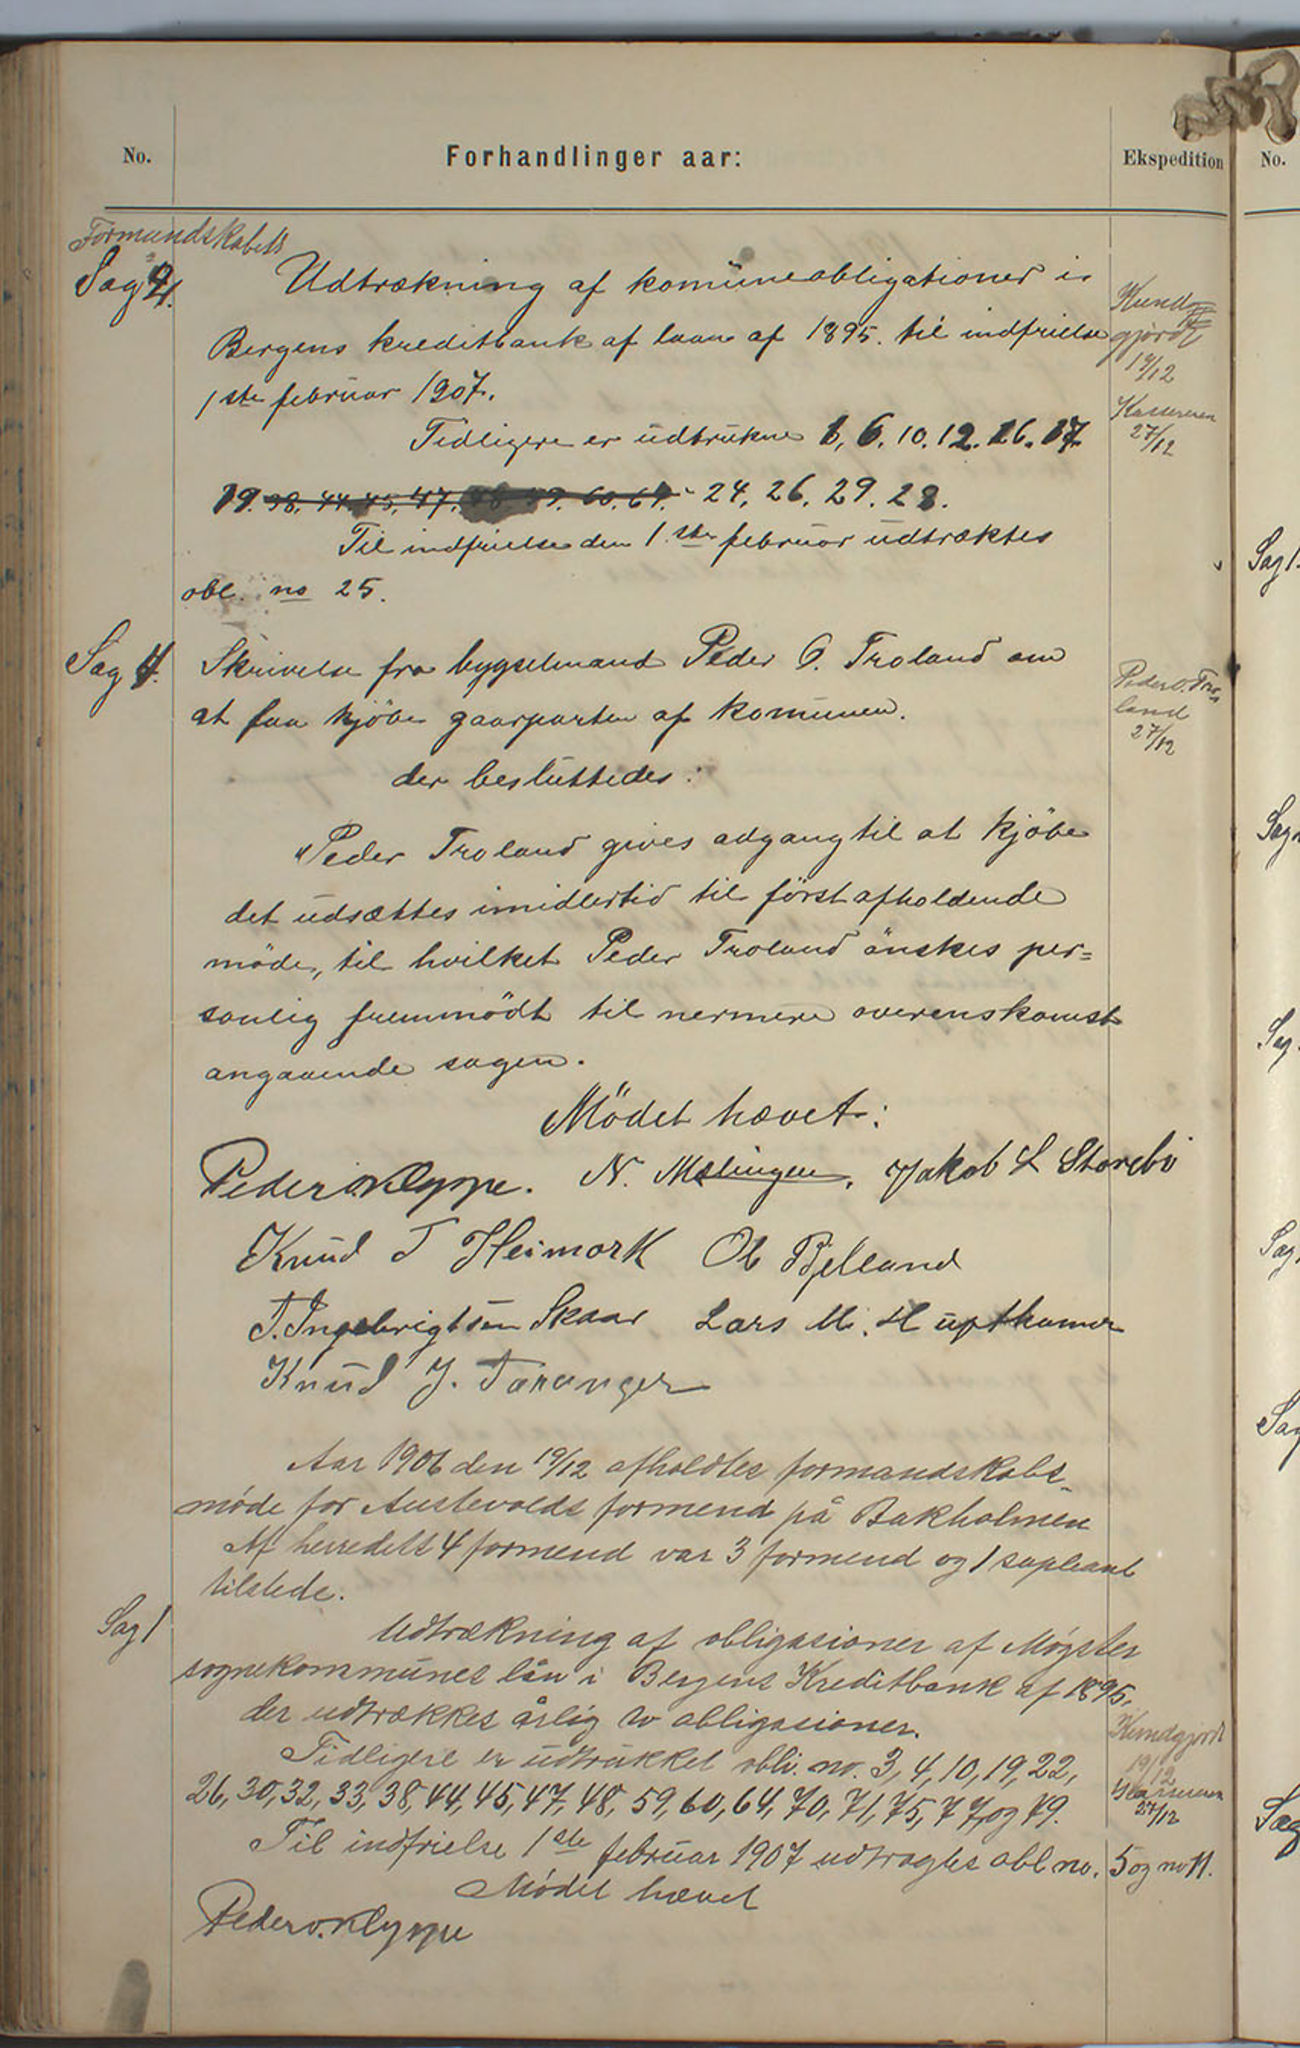 No.
Forhandlinger aar:
Ekspedition
No.
Formandskabets
Sag 2.
Udtrækning af komuneobligationer i
Bergens kreditbank af laan af 1895. til indfrielse
1ste februar 1907.
Kund=
gjordt
19/12
Kassereren
27/12
Tidligere er udtrukne 1, 6. 10. 12. 16. 17.
19. 38. 44. 45. 47. 48 59. 60. 64. 24, 26, 29. 28.
Til indfrielse den 1ste februar udtræktes
obl. no 25.
Sag 4.
Skrivelse fra bygselmand Peder O. Troland om
at faa kjöbe gaarparten af komunen.
Peder O. Tro=
land
27/12
der besluttedes:
"Peder Troland gives adgang til at kjöbe
det udsættes imidlertid til först afholdende
möde, til hvilket Peder Troland önskes per=
sonlig fremmödt til nermere overenskomst
angaaende sagen.
Mödet hævet:
Peder O. Klyppe. N. Mælingen. Jakob L Storebö
Knud T Heimark Ol Bjelland
T. Ingebrigtsen Skaar Lars M. Hufthamer
Knud J. Taranger
Aar 1906 den 19/12 afholdtes formandskabs=
möde for Austevolds formend på Bakholmen
Af herredets 4 formend var 3 formend og 1 supleant
tilstede.
Sag 1
Udtrækning af obligasioner af Møgster
sognekommunes lån i Bergens Kreditbank af 1895.
der udtrækkes årlig to obligasioner.
Tidligere er udtrukket obli. no. 3, 4, 10, 19, 22,
26, 30, 32, 33, 38, 44, 45, 47, 48, 59, 60, 64, 70, 71, 75, 77, og 79.
Kundgjort
19/12
Kassereren
27/12
Til indfrielse 1ste februar 1907 udtragtes obl no. 5 og no 11.
Mödet hævet
Peder O. Klyppe
Sag 1.
Sag
Sag.
Sag.
Sag
Sag